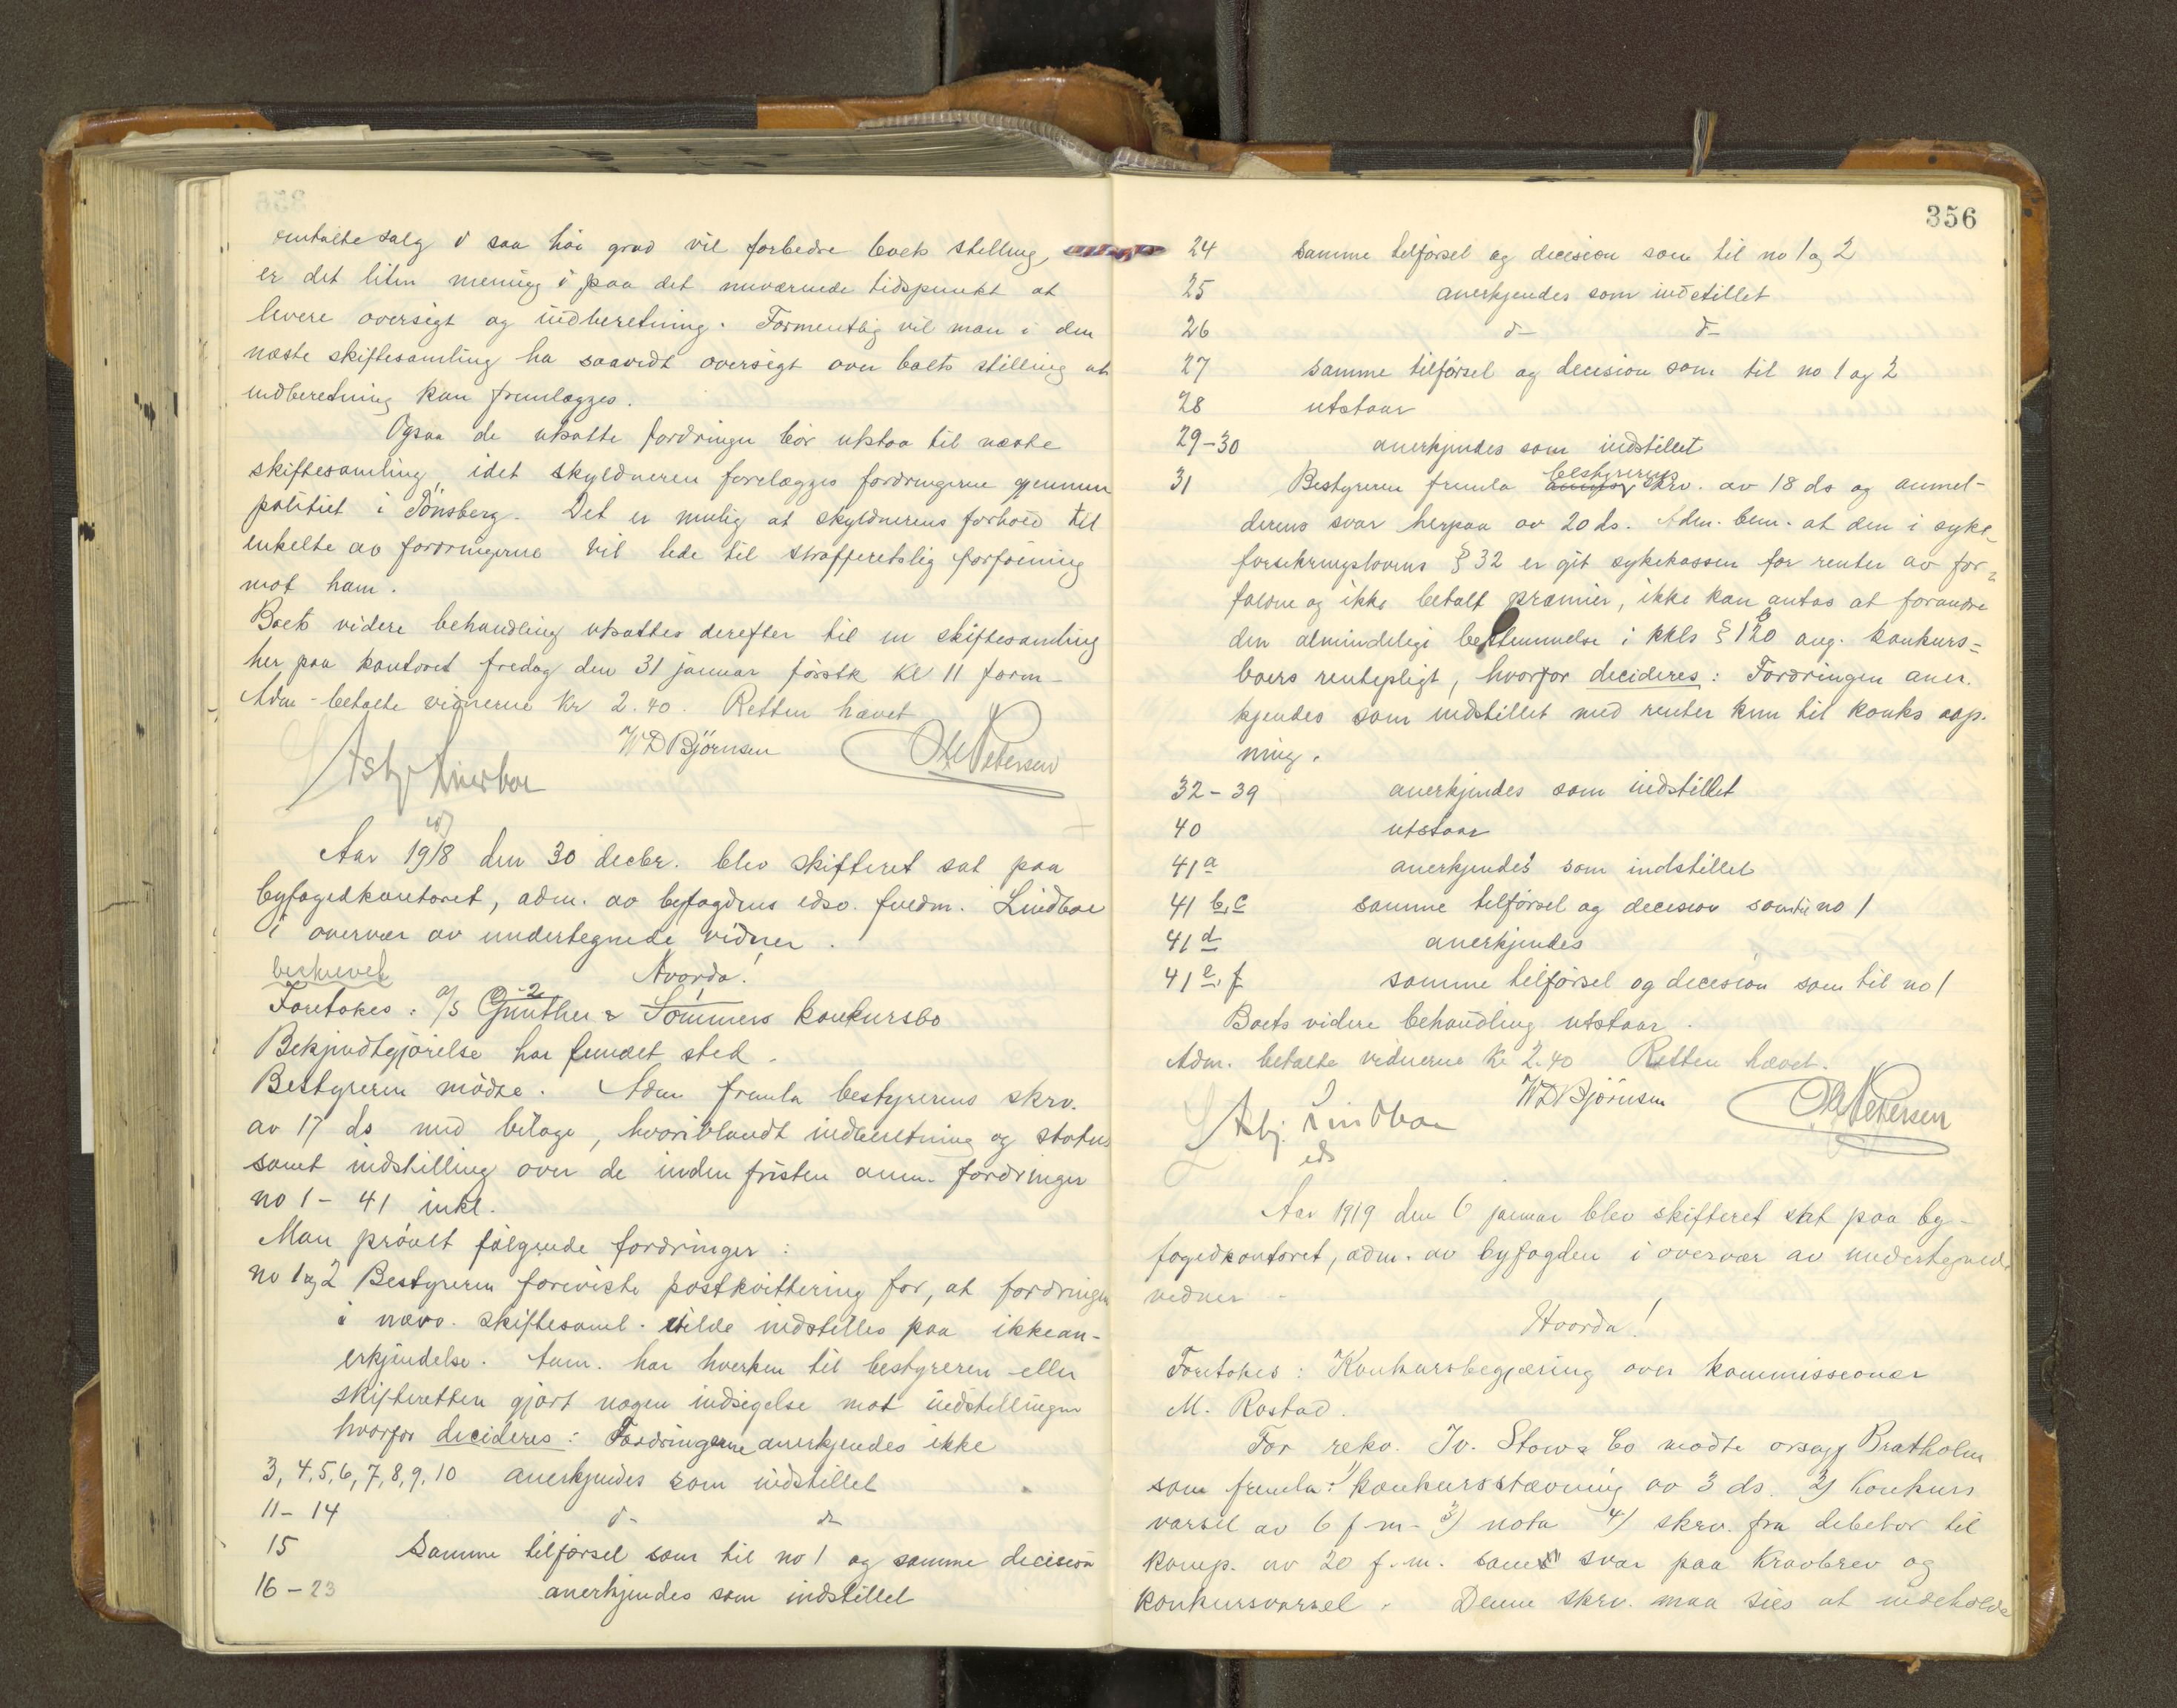 omtalte salg i saa høi grad vil forbedre boets stilling,
er det liten mening i paa det nuværende tidspunkt at
levere oversigt og indberetning. Formentlig vil man i den
næste skiftesamling ha saavidt oversigt over boets stilling at
indberetning kan fremlægges.
Ogsaa de utsatte fordringer bør utstaa til næste
skiftesamling, idet skyldneren forelægges fordringerne gjennem
politiet i Tönsberg. Det er mulig at skyldnerens forhold til
enkelte av fordringerne vil lede til strafferetslig forføining
mot ham.
Boets videre behandling utsattes derefter til en skiftesamling
her paa kontoret fredag den 31 januar førstk kl 11 form-
Adm-betalte vidnerne kr 2.40. Retten hævet
Asbj Lindboe WDBjörnsen Petersen
Aar 1918 den 30 decbr. blev skifteret sat paa
byfogedkontoret, adm. av byfogdens edsv. fuldm. Lindboe
i overvær av undertegnede vidner.
beskrevet Hvorda!
Foretokes: a/s Günther & Sommers konkursbo
Bekjendtgjørelse har fundet sted.
Bestyreren mødte. Adm fremla bestyrerens skrv.
av 17 ds med bilage, hvoriblandt indberetning og status
samt indstilling over de inden fristen anm. fordringer
no 1 - 41 inkl.
Man prøvet følgende fordringer:
no 1 og 2 Bestyreren foreviste postkvittering for, at fordringen
i nærv. skiftesaml. vilde indstilles paa ikkean-
erkjendelse. Anm. har hverken til bestyreren eller
skifteretten gjort nogen indsigelse mot indstillingen
hvorfor decideres: Fordringerne anerkjendes ikke
3, 4, 5, 6, 7, 8, 9, 10 anerkjendes som indstillet
11 - 14 d- d-
15 Samme tilførsel som til no 1 og samme decision
16 - 23 anerkjendes som indstillet
356
24 samme tilførsel og decision som til no 1 og 2
25 anerkjendes som indstillet
26 d- d-
27 samme tilførsel og decision som til no 1 og 2
28 utstaar
29-30 anerkjendes som indstillet
31 Bestyreren fremla bestyrerens skrv. av 18 ds og anmel-
derens svar herpaa av 20 ds. Adm. bem. at den i syke-
forsikringslovens § 32 er git sykekassen for renter av for-
faldne og ikke betalt præmier, ikke kan antas at forandre
den almindelige bestemmelse i kkls § 120 ang. konkurs-
boers rentepligt, hvorfor decideres: Fordringen aner-
kjendes som indstillet med renter kun til konks aap-
ning.
32 - 39 anerkjendes som indstillet
40 utstaar
41 a anerkjendes som indstillet
41 b, c samme tilførsel og decision som til no 1
41 d anerkjendes
41 e, f samme tilførsel og decision som til no 1
Boets videre behandling utstaar.
Adm. betalte vidnerne kr 2.40 Retten hævet.
Asbj. Lindboe WDBjörnsen Petersen
eds
Aar 1919 den 6 januar blev skifteret sat paa by-
fogedkontoret, adm. av byfogden i overvær av undertegnede
vidner -
Hvorda!
Foretokes: Konkursbegjæring over kommissionær
M. Rostad.
For rekv. Iv. Stow & Co mødte orsagf Bratholm
som fremla: 1) konkursstævning av 3 ds. 2) konkurs
varsel av 6 f-m- 3) nota 4) skrv. fra debitor til
komp. av 20 f.m. som svar paa kravbrev og
konkursvarsel. Denne skrv. maa sies at indeholde